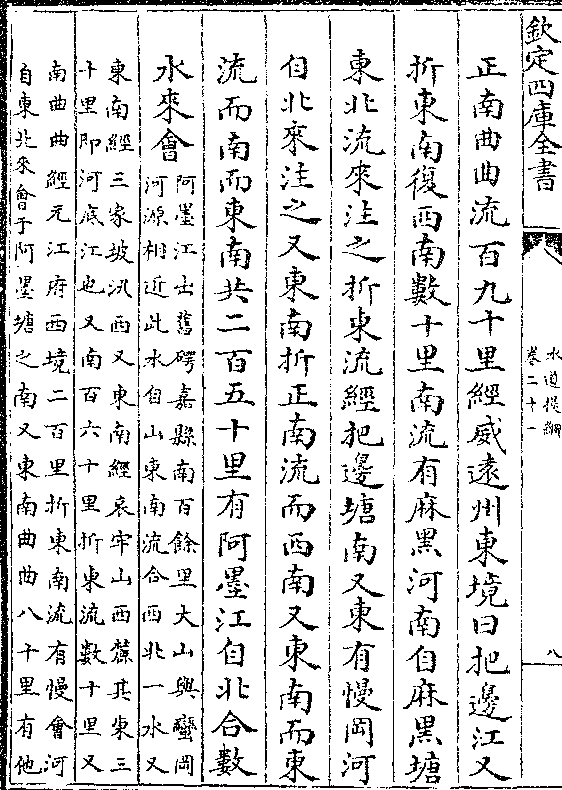 欽定四庫全書
水道提綱
卷二十一
八
正南曲曲流百九十里經威遠州東境曰把邊江又
折東南復西南數十里南流有麻黑河南自麻黑塘
東北流來注之折東流經把邊塘南又東有慢岡河
自北來注之又東南折正南流而西南又東南而東
流而南而東南共二百五十里有阿墨江自北合數
水來會
阿墨江出舊碍嘉縣南百餘里大山與蠻岡
河源相近此水自山東南流合西北一水又
東南經三家坡汛西又東南經哀牢山西麓其東三
十里即河底江也又南百六十里折東流數十里又
南曲曲經元江府西境二百里折東南流有慢會河
自東北來會于阿墨塘之南又東南曲曲八十里有他